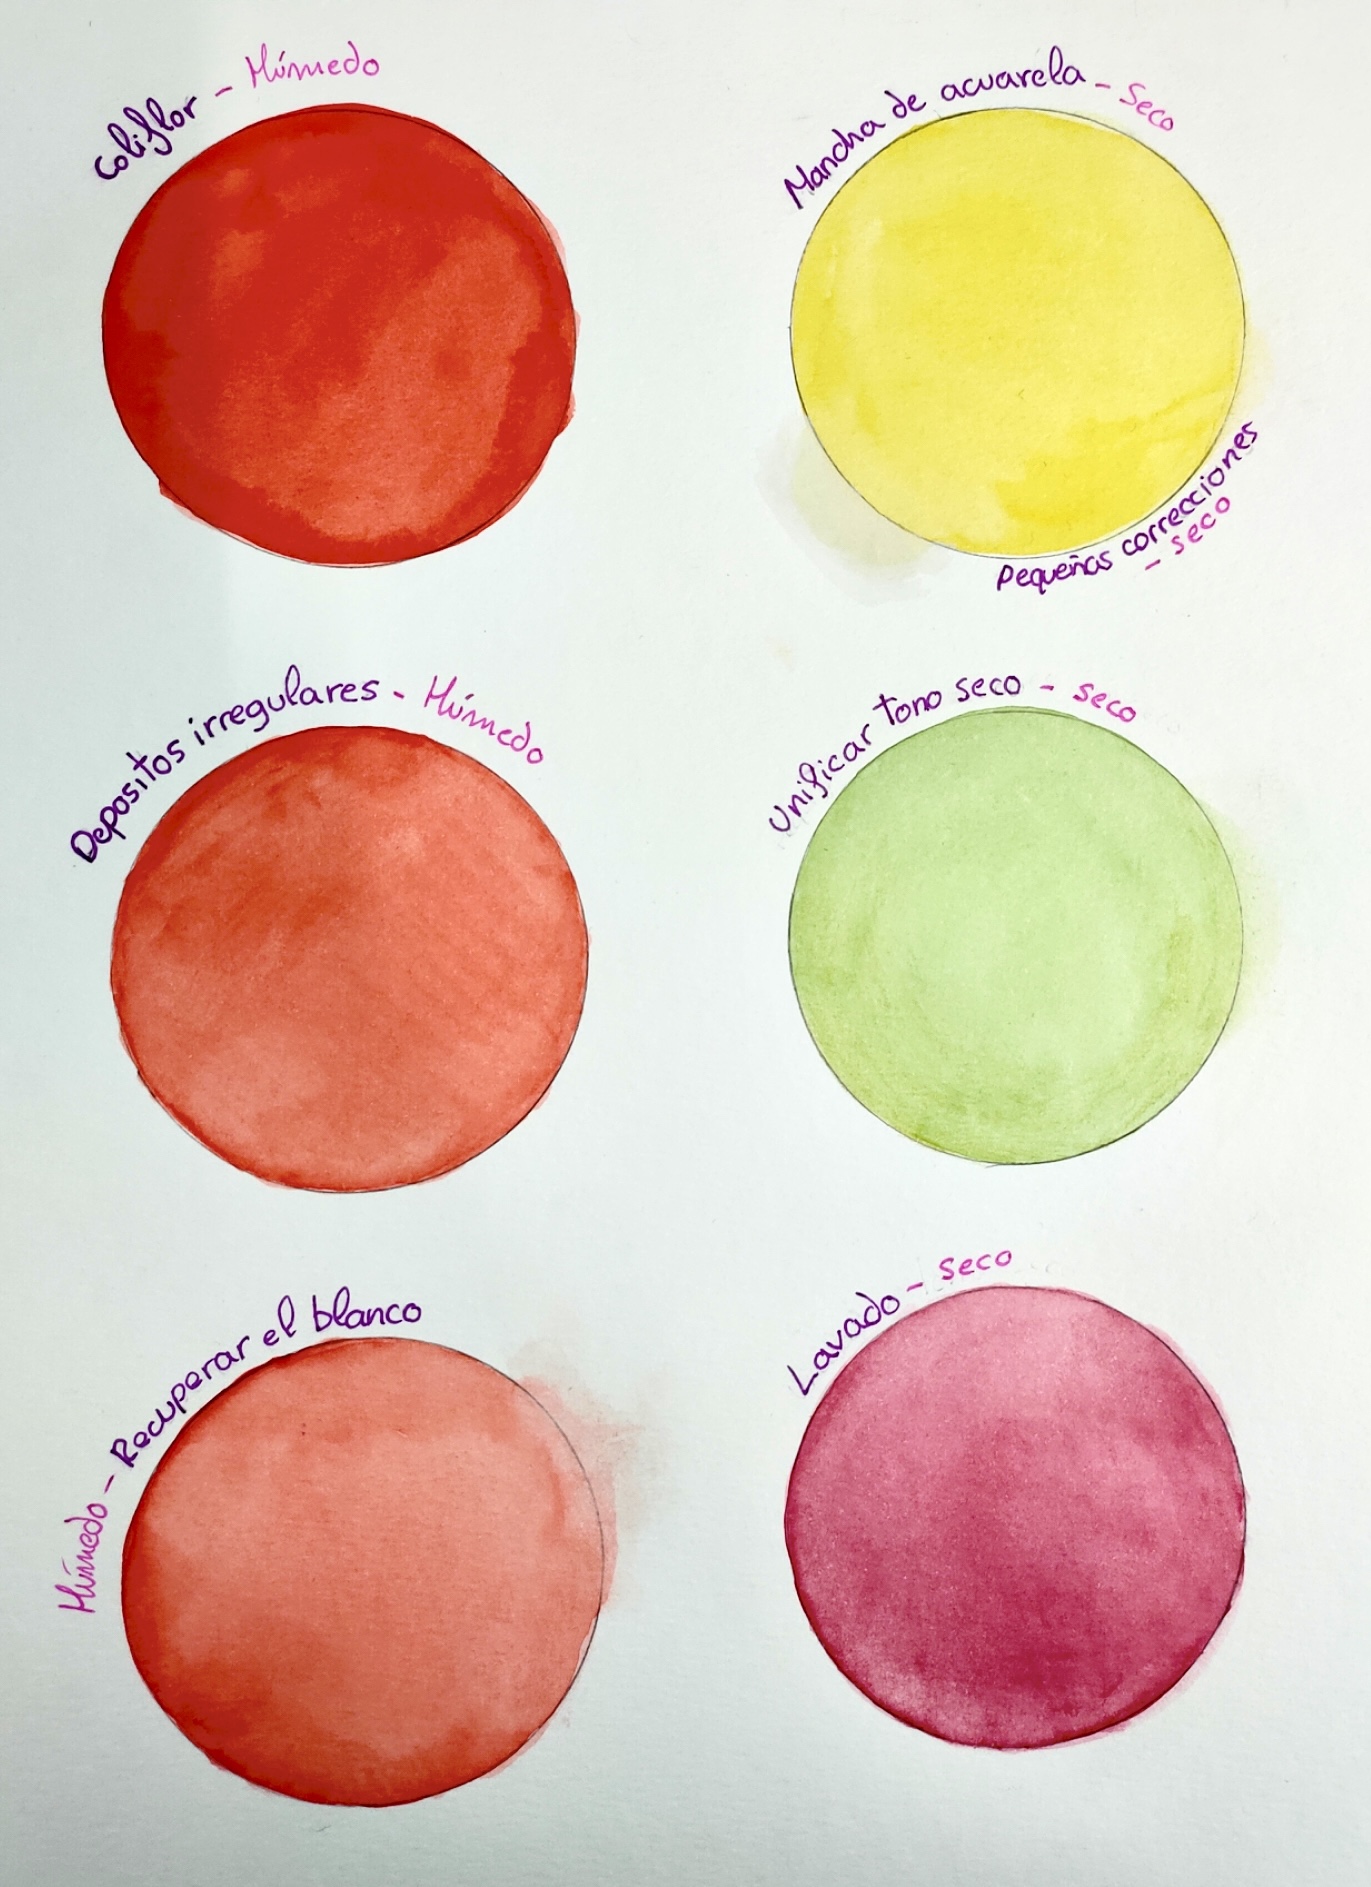 Coliflor - Húmedo
Mancha de acuarela - Seco
Pequeñas correcciones
- seco
Depositos irregulares - Húmedo
Unificar tono seco - seco
Húmedo - Recuperar el blanco
Lavado - seco